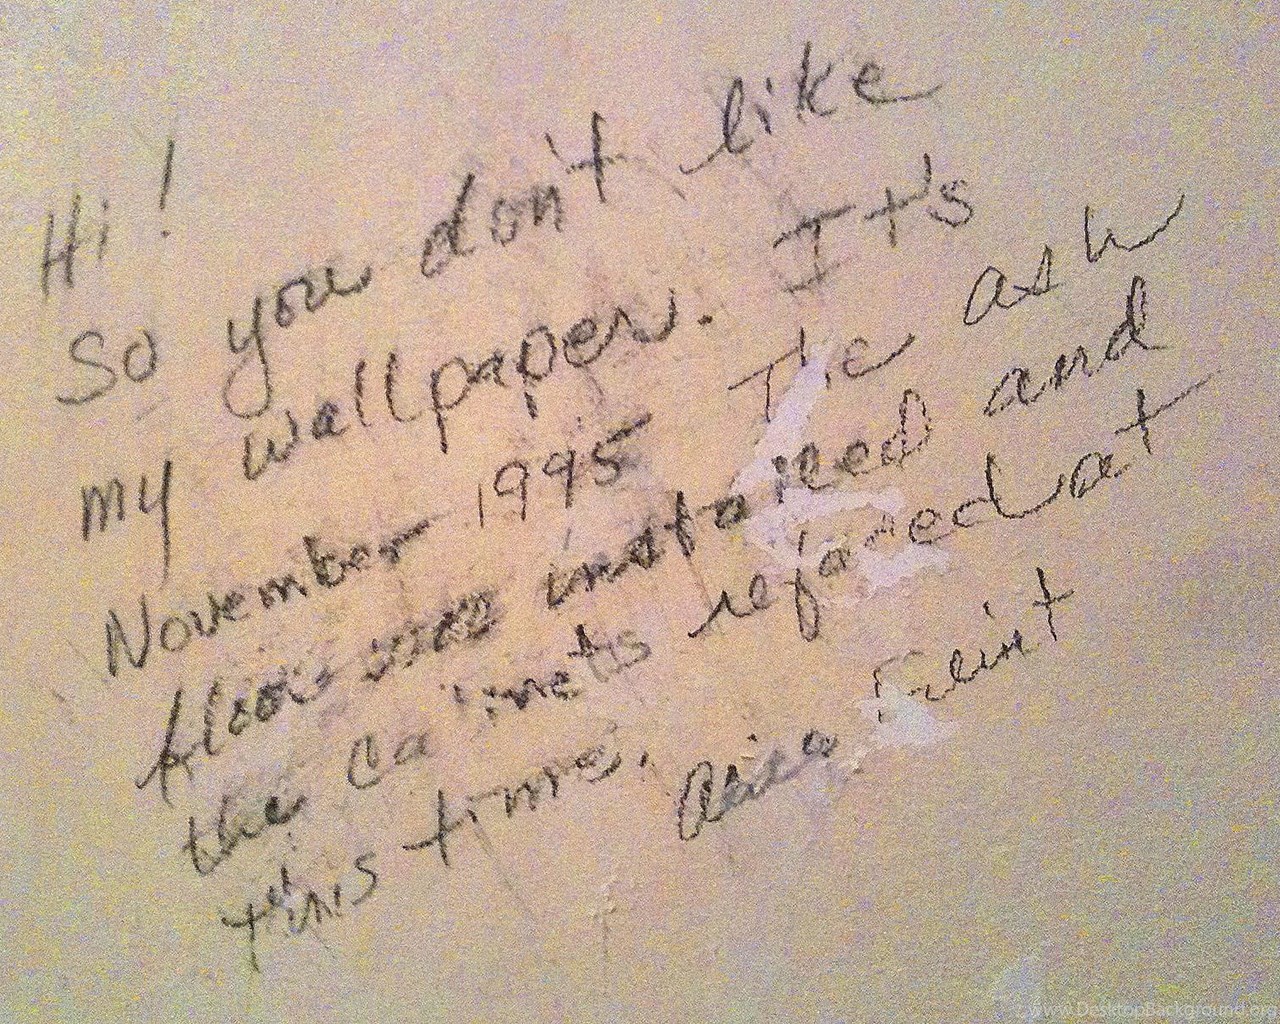 Hi!
So you don't like
my wallpaper. It's
November 1995 The ash
floors were installed and
the cabinets refaced at
this time.
www.DesktopBackground.org